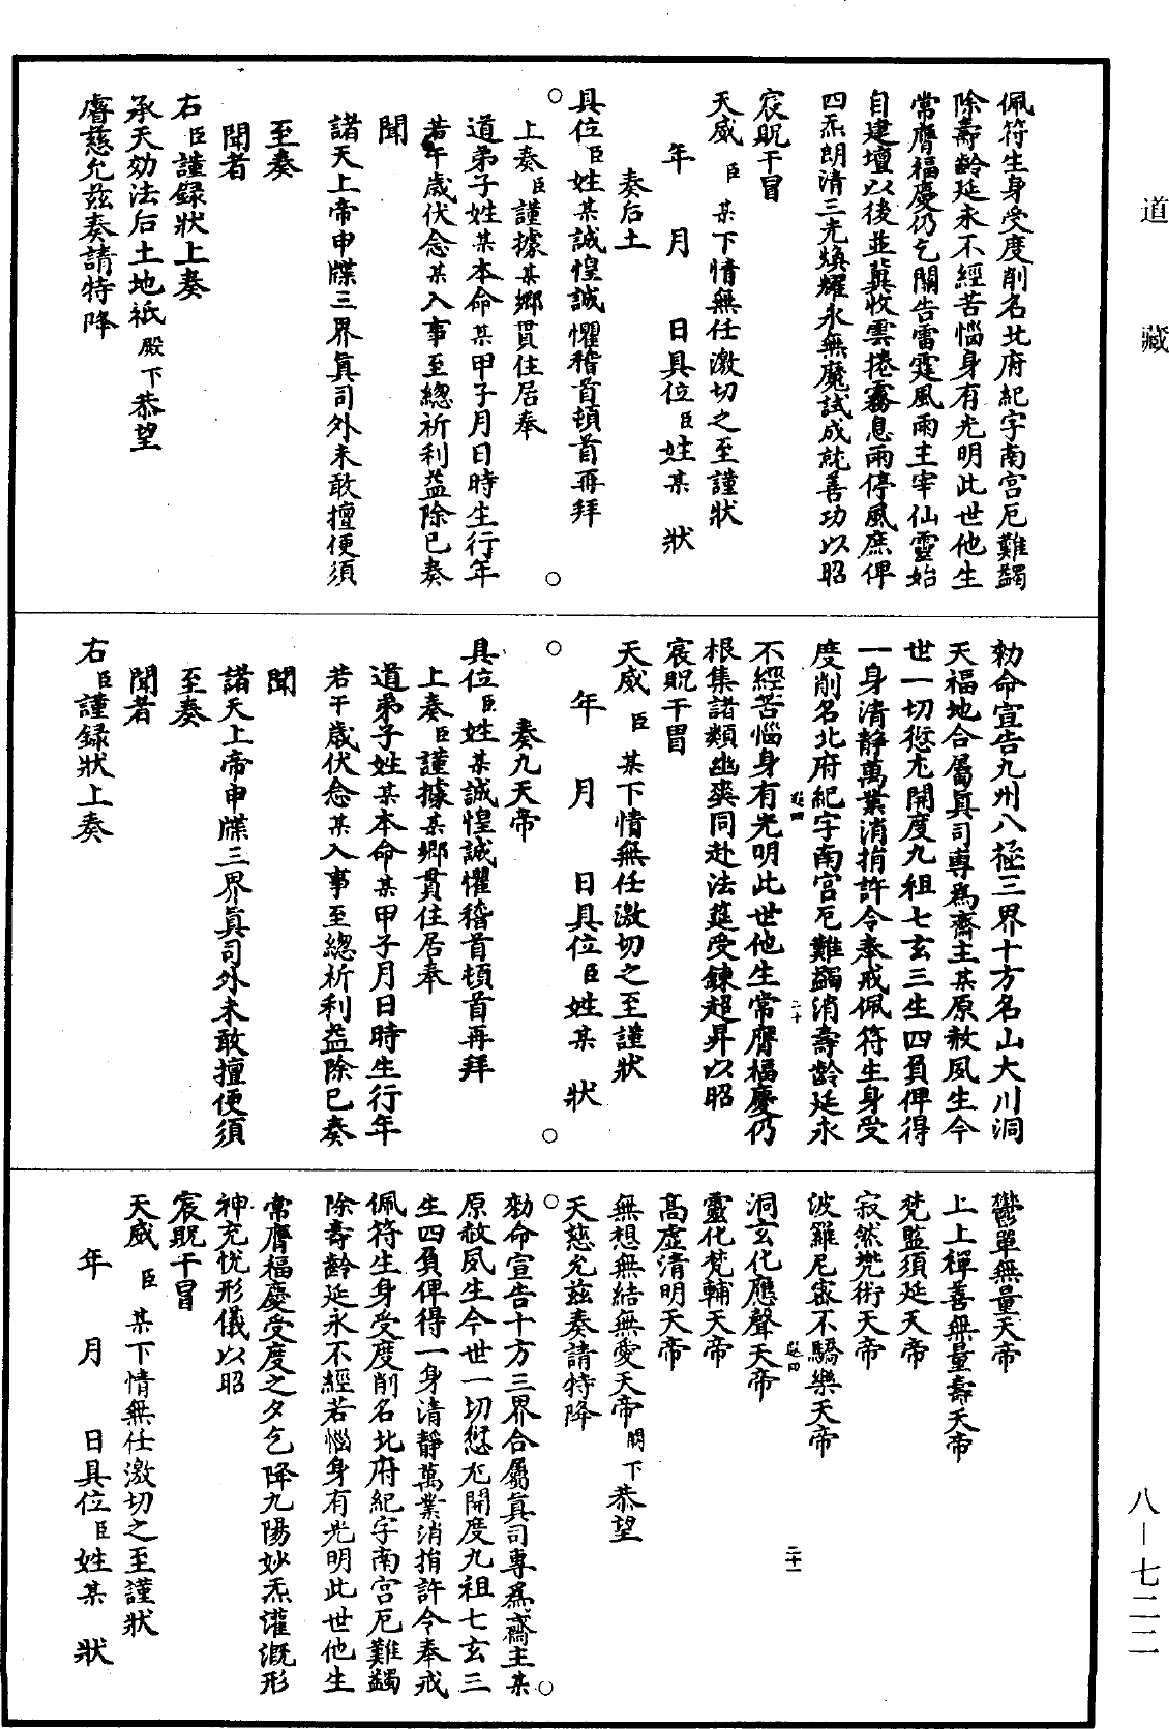 道藏
佩符生身受度削名北府紀字南宮厄難蠲
除壽齡延永不經苦惱身有光明此世他生
常膺福慶仍乞關告雷霆風雨主宰仙靈始
自建壇以後並冀收雲捲霧息雨停風庶俾
四炁朗清三光煥耀永無魔試成就善功以昭
宸貺干冒
天威臣某下情無任激切之至謹狀
年月日具位臣姓某狀
奏后土
具位臣姓某誠惶誠懼稽首頓首再拜
上奏臣謹據某鄉貫住居奉
道弟子姓某本命某甲子月日時生行年
若干歲伏念某入事至總祈利益除已奏
聞
諸天上帝申牒三界眞司外未敢擅便須
至奏
聞者
右臣謹錄狀上奏
承天効法后土地祇殿下恭望
睿慈允兹奏請特降
勑命宣告九州八極三界十方名山大川洞
天福地合屬眞司專爲齋主某原赦夙生今
世一切愆尤開度九祖七玄三生四負俾得
一身清靜萬業消捐許令奉戒佩符生身受
度削名北府紀字南宮厄難蠲消壽齡延永
不經苦惱身有光明此世他生常膺福慶仍
根集諸類幽爽同赴法筵受鍊超昇以昭
宸貺干冒
天威臣某下情無任激切之至謹狀
年月日具位臣姓某狀
奏九天帝
具位臣姓某誠惶誠懼稽首頓首再拜
上奏臣謹據某鄉貫住居奉
道弟子姓某本命某甲子月日時生行年
若干歲伏念某入事至總祈利益除已奏
聞
諸天上帝申牒三界眞司外未敢擅便須
至奏
聞者
右臣謹錄狀上奏
鬱單無量天帝
上上禪善無量壽天帝
梵監須延天帝
寂然兠術天帝
波羅尼密不驕樂天帝
洞玄化應聲天帝
靈化梵輔天帝
高虛清明天帝
無想無結無愛天帝闕下恭望
天慈允兹奏請特降
勑命宣告十方三界合屬眞司專爲齋主某
原赦夙生今世一切愆尤開度九祖七玄三
生四負俾得一身清靜萬業消捐許令奉戒
佩符生身受度削名北府紀字南宮厄難蠲
除壽齡延永不經苦惱身有光明此世他生
常膺福慶受度之夕乞降九陽妙炁灌溉形
神充悅形儀以昭
宸貺干冒
天威臣某下情無任激切之至謹狀
年月日具位臣姓某狀
八—七二二